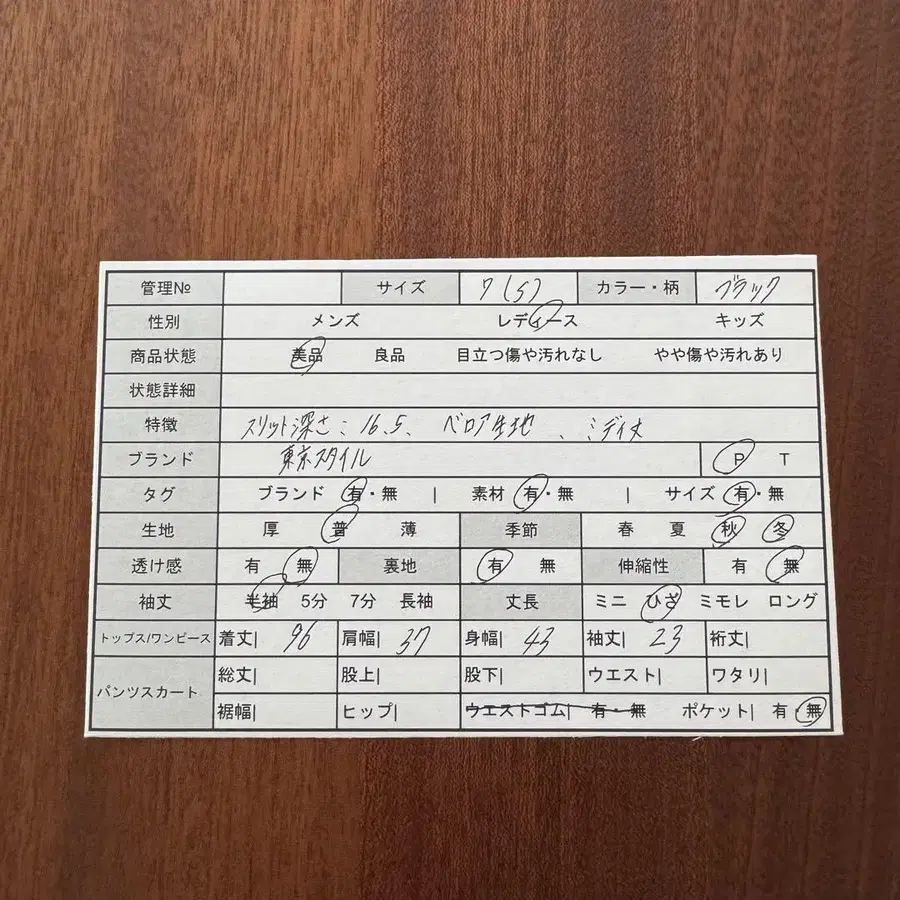 管理№ サイズ 7(S) カラー・柄 ブラック
性別 メンズ レディース キッズ
商品状態 美品 良品 目立つ傷や汚れなし やや傷や汚れあり
状態詳細
特徴 スリット深さ:16.5、ベロア生地、ミディ丈
ブランド 東京スタイル P T
タグ ブランド 有・無 | 素材 有・無 | サイズ 有・無
生地 厚 普 薄 季節 春 夏 秋 冬
透け感 有 無 裏地 有 無 伸縮性 有 無
袖丈 半袖 5分 7分 長袖 丈長 ミニ ひざ ミモレ ロング
トップス/ワンピース 着丈| 96 肩幅| 37 身幅| 43 袖丈| 23 裄丈|
パンツスカート 総丈| 股上| 股下| ウエスト| ワタリ|
裾幅| ヒップ| ウエストゴム| 有・無 ポケット| 有・無